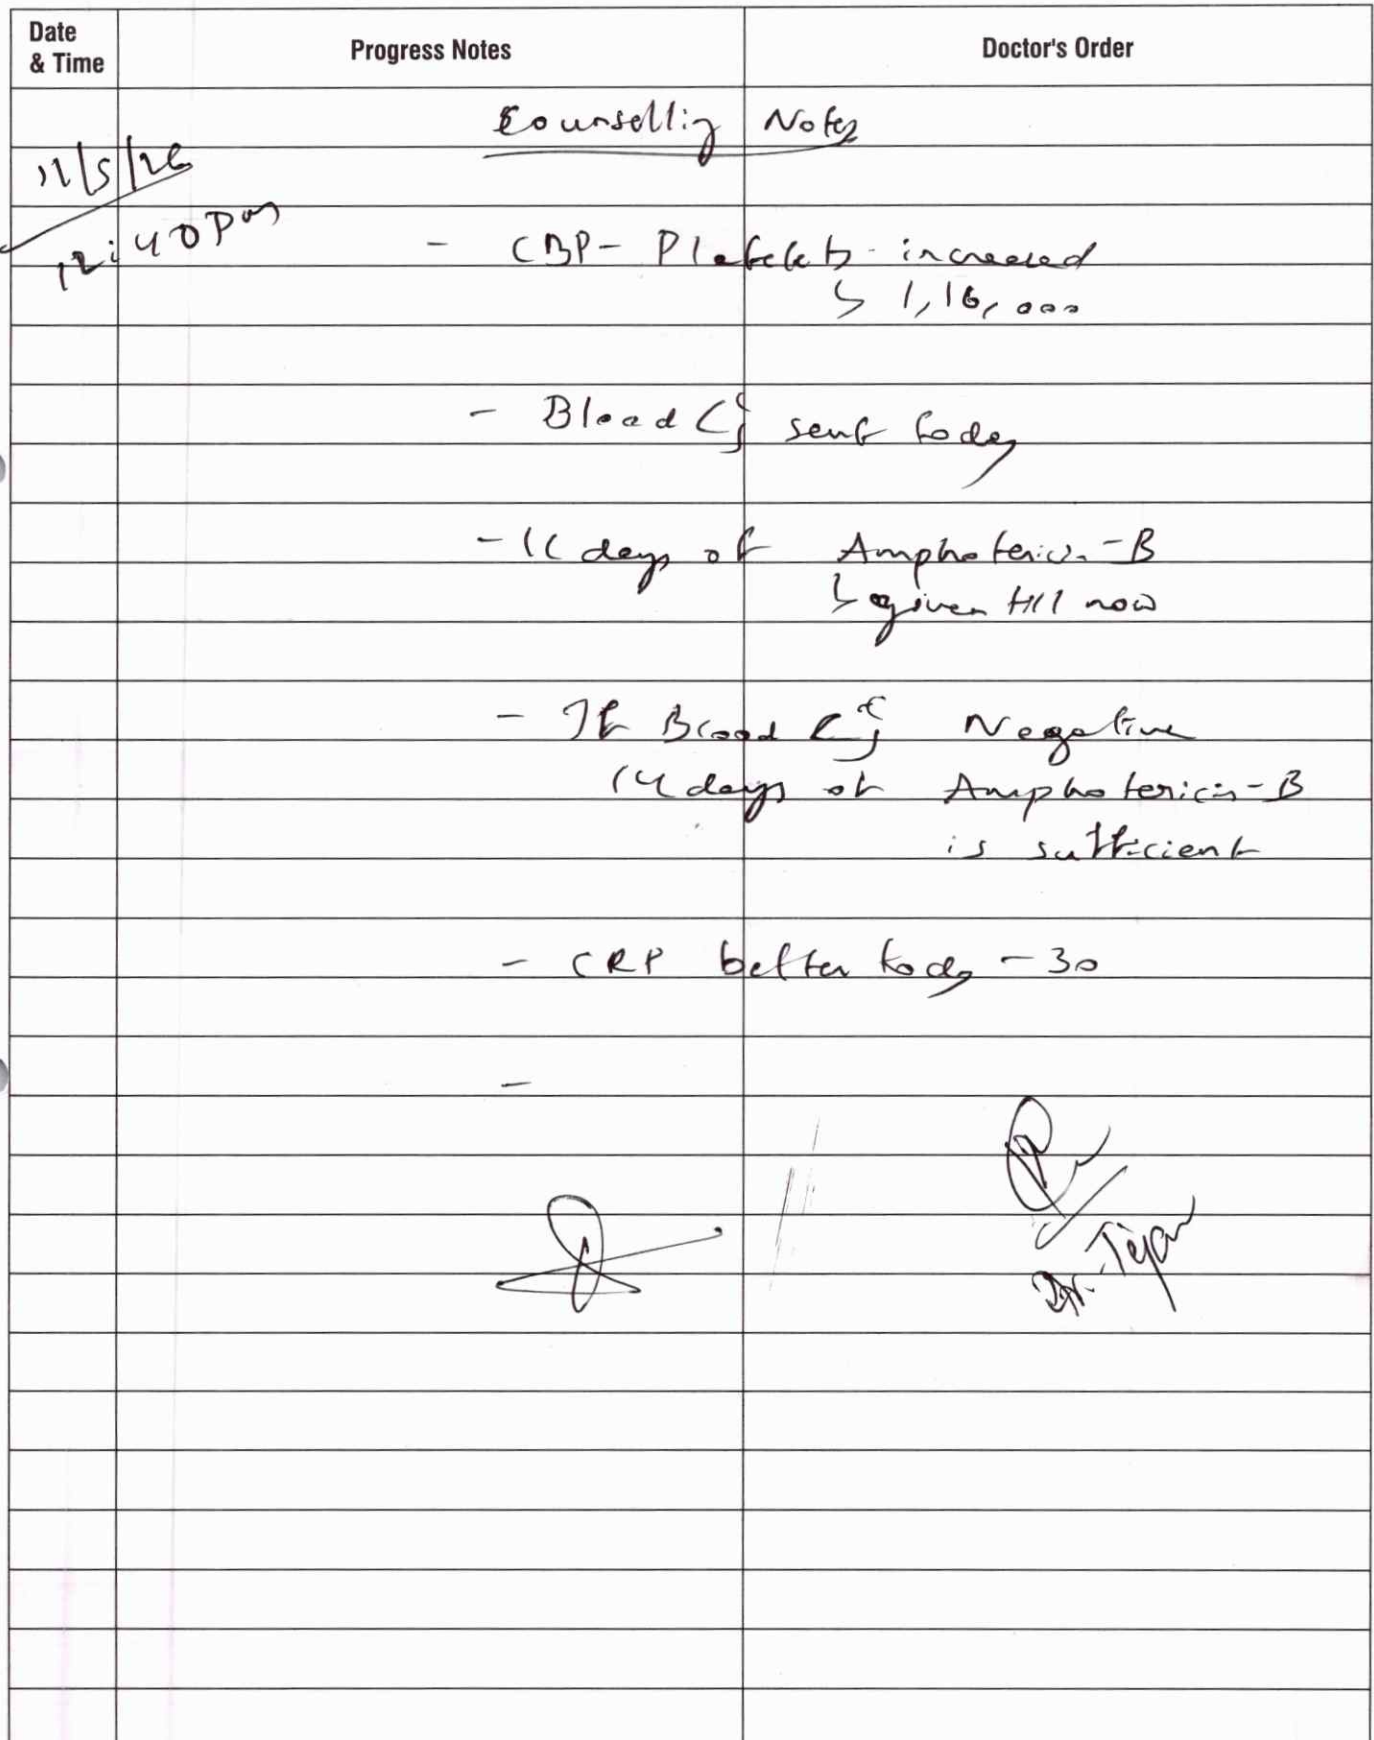 Date & Time
Progress Notes
Doctor's Order
Counselling Notes
11/5/26
12:40 pm
- CBP - Platelets increased
↳ 1,16,000
- Blood C/S sent today
- 11 days of Amphotericin-B
↳ given till now
- If Blood C/S Negative
14 days of Amphotericin-B
is sufficient
- CRP better today - 30
-
Dr. Tejas